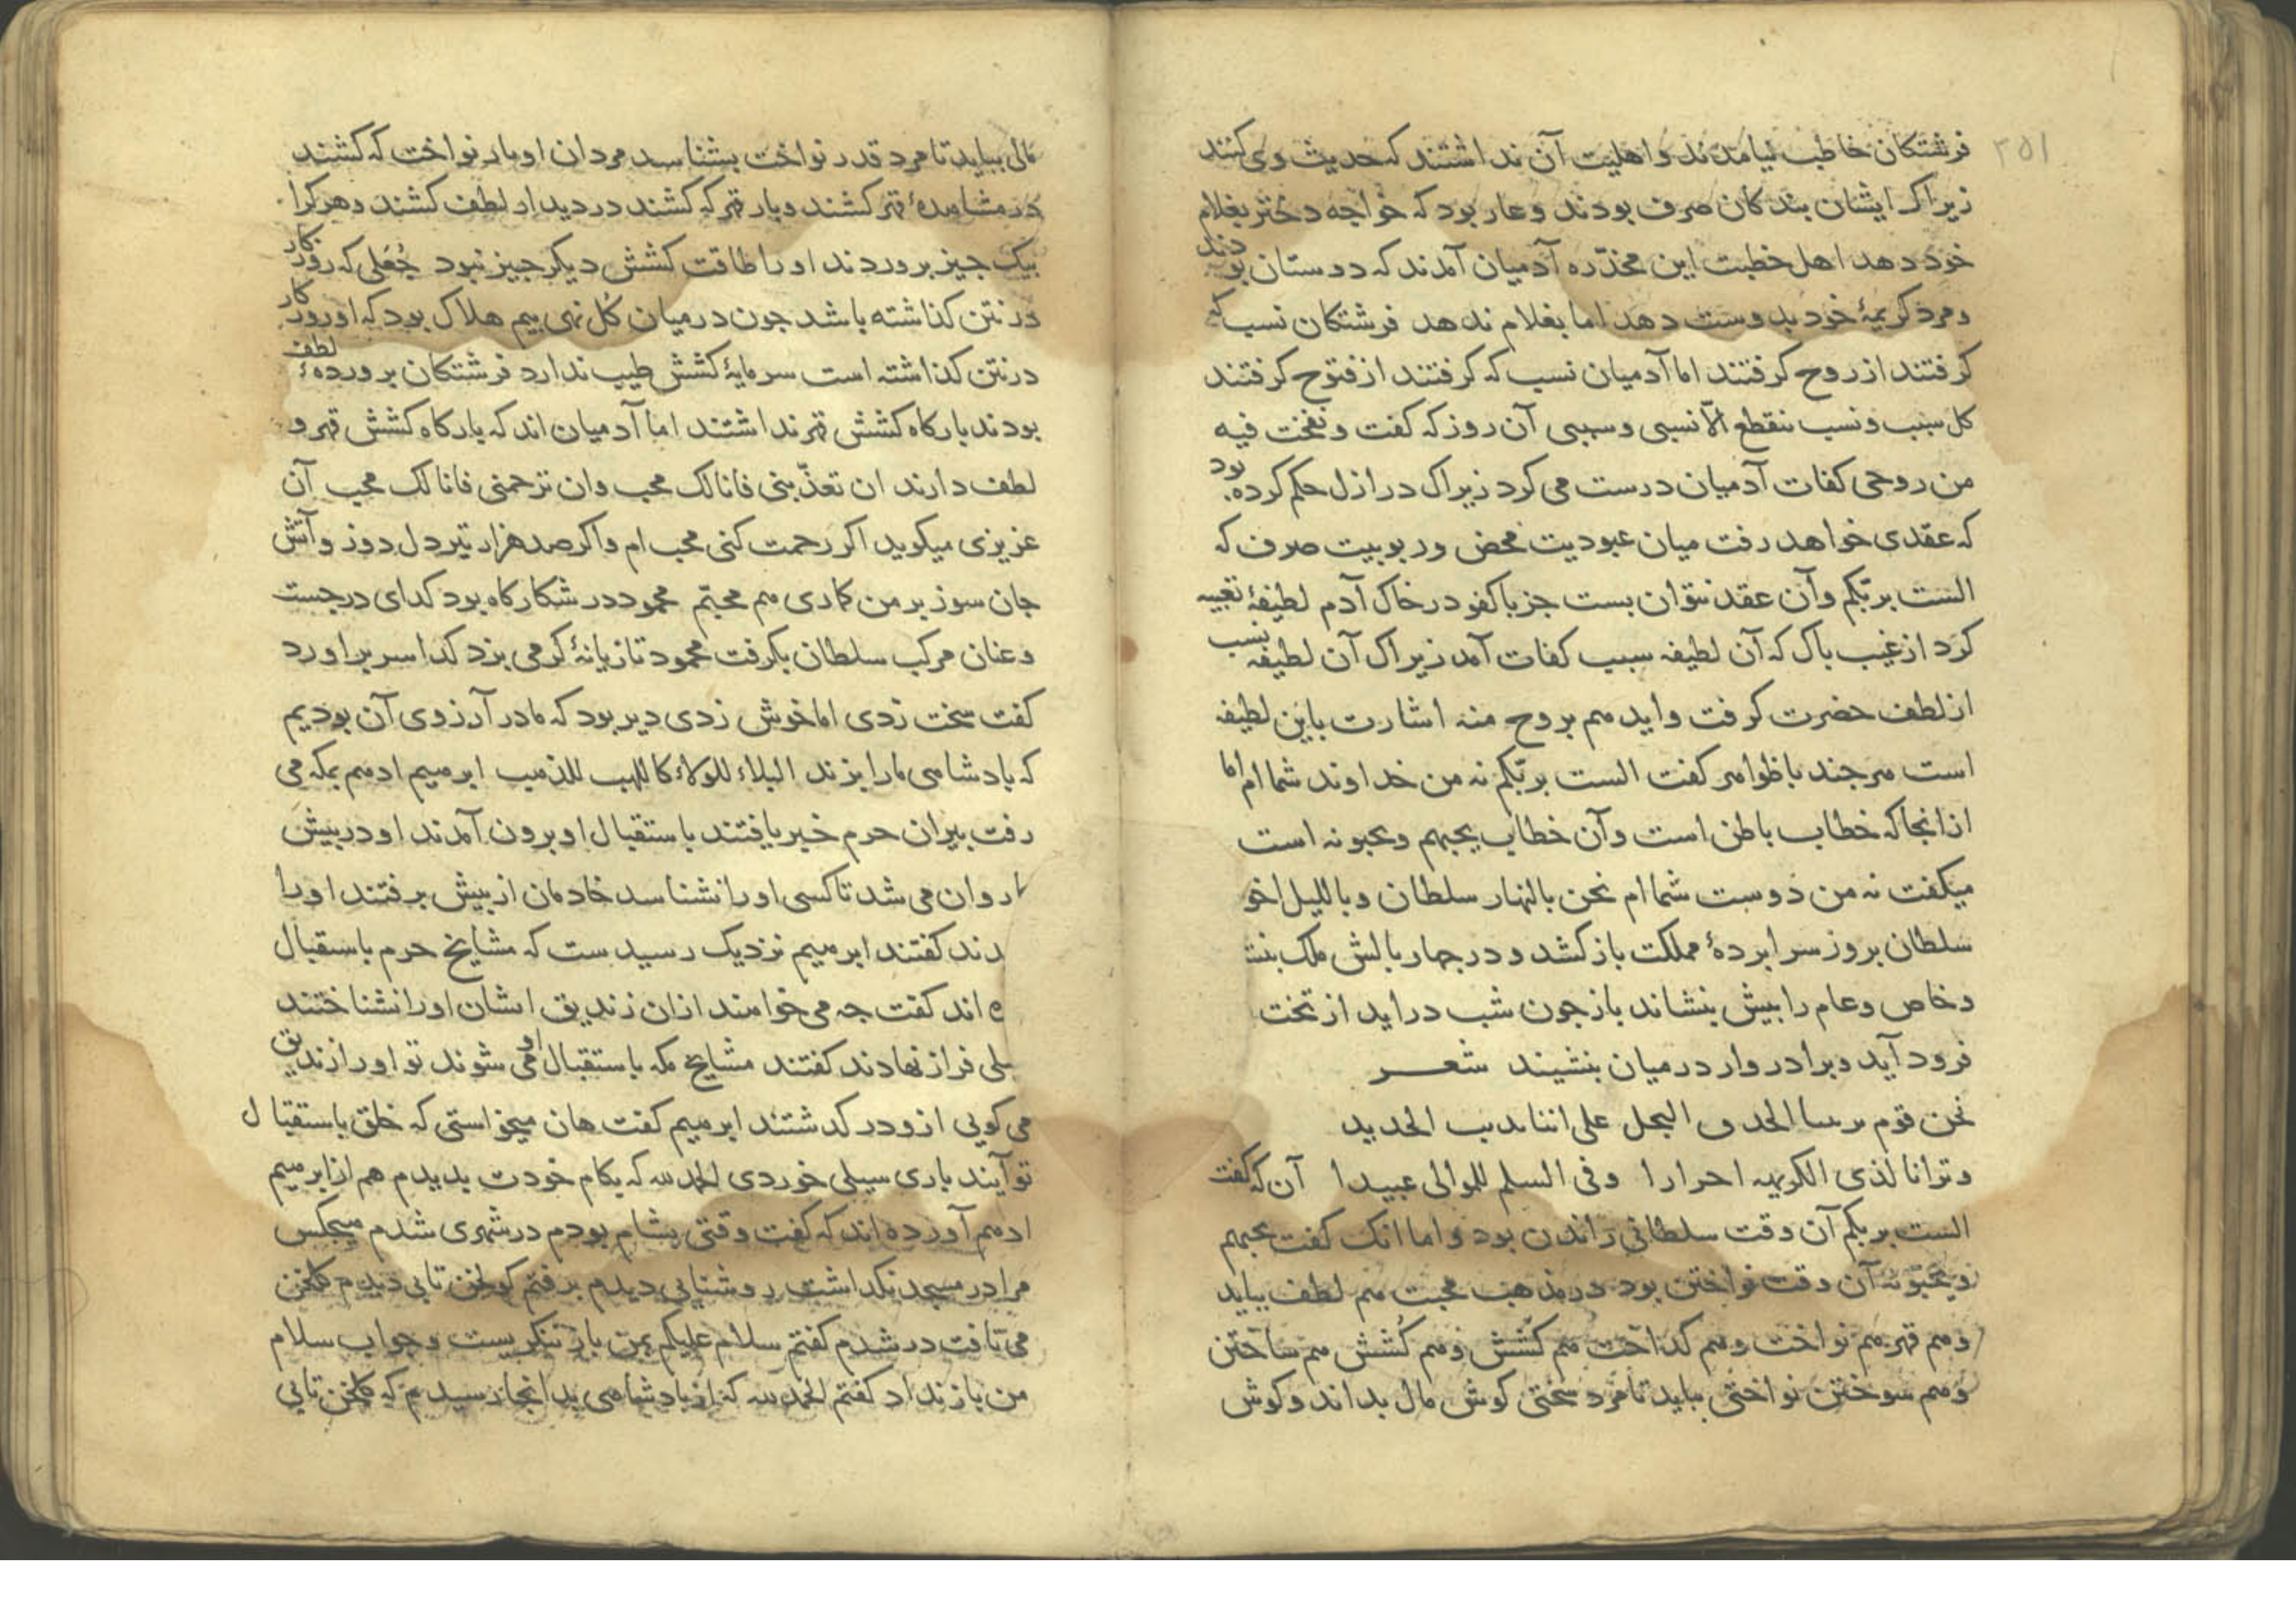 ۳۵۱
فرشتکان خاطب نیامدند و اهلیت آن نداشتند که حدیث وی کنند
زیراک ایشان بندکان صرف بودند و عار بود که خواجه دختر بغلام
خود دهد اهل خطبت این مخدّره آدمیان آمدند که دوستان بودند
و مرد کریمهٔ خود بدوست دهد اما بغلام ندهد فرشتکان نسب که
کرفتند از روح کرفتند اما آدمیان نسب که کرفتند از فتوح کرفتند
کل سبب و نسب ینقطع الّا نسبی و سببی آن روز که کفت و نفخت فیه
من روحی کفات آدمیان درست می کرد زیراک در ازل حکم کرده بود
که عقدی خواهد رفت میان عبودیت محض و ربوبیت صرف که
الست بربّکم و آن عقد نتوان بست جز باکفو در خاک آدم لطیفهٔ تعبیه
کرد از غیب باک که آن لطیفه سبب کفات آمد زیراک آن لطیفه نسب
از لطف حضرت کرفت و ایدهم بروح منه اشارت باین لطیفه
است هرجند باظواهر کفت الست بربّکم نه من خداوند شما ام اما
ازانجا که خطاب باطن است و آن خطاب یحبهم و یحبونه است
میکفت نه من دوست شما ام نحن بالنهار سلطان و باللیل اخو
سلطان بروز سرابردهٔ مملکت بازکشد و در جهار بالش ملک بنشـ
و خاص و عام را بیش بنشاند باز جون شب دراید از تخت
فرود آید و برادروار درمیان بنشیند شعــــر
نحن قوم البجل علی اننا الحدید
و ترانا لذی الکریهه احرارا وفی السلم للموالی عبیدا آن که کفت
الست بربکم آن وقت سلطانی راندن بود و اما انک کفت یحبهم
و یحبونه آن وقت نواختن بود در مذهب محبت هم لطف بباید
و هم قهر هم نواخت و هم کداخت هم کشش و هم کُشش هم ساختن
و هم سوختن نواختی بباید تا مرد سختی کوش مال بداند و کوش
مالی بباید تا مرد قدر نواخت بشناسد مردان او بار نواخت که کشند
در مشاهدهٔ قهر کشند و بار قهر که کشند در دیدار لطف کشند و هرکرا
بیک جیز بروردند او را طاقت کشش دیکر جیز نبود جُعَلی که روزکار
در نتن کذاشته باشد جون درمیان کُل نهی بیم هلاک بود که او روزکار
در نتن کذاشته است سرمایهٔ کشش طیب ندارد فرشتکان بروردهٔ لطف
بودند بارکاه کشش قهر نداشتند اما آدمیان اند که بارکاه کشش قهر و
لطف دارند ان تعذّبنی فانا لک محب وان ترحمنی فانا لک محب آن
عزیزی میکوید اکر رحمت کنی محب ام و اکر صد هزار تیر دل دوز و آتش
جان سوز بر من کماری هم محبّم محمود در شکارکاه بود کدای درجست
و عنان مرکب سلطان بکرفت محمود تازیانهٔ کرمی بزد کدا سر براورد
کفت سخت زدی اما خوش زدی دیر بود که ما در آرزوی آن بودیم
که بادشاهی ما را بزند البلاء للولاء کاللهب للذهب ابرهیم ادهم بمکه می
رفت بیران حرم خبر یافتند باستقبال او برون آمدند او در بیش
روان می شد تا کسی او را نشناسد خادمان از بیش برفتند او را
دند کفتند ابرهیم نزدیک رسیدست که مشایخ حرم باستقبال
ه اند کفت جه می خواهند ازان زندیق ایشان او را نشناختند
یلی فراز نهادند کفتند مشایخ مکه باستقبال او می شوند تو او را زندیق
می کویی ازو درکدشتند ابرهیم کفت هان میخواستی که خلق باستقبال
تو آیند باری سیلی خوردی الحمدلله که بکام خودت بدیدم هم از ابرهیم
ادهم آورده اند که کفت وقتی بشام بودم در شهری شدم هیجکس
مرا در مسجد نکداشت روشنایی دیدم برفتم کولخن تابی دیدم کلخن
می تافت در شدم کفتم سلام علیکم بمن باز ننکریست و جواب سلام
من باز نداد کفتم الحمدلله که از بادشاهی بدانجا رسیدم که کلخن تابی